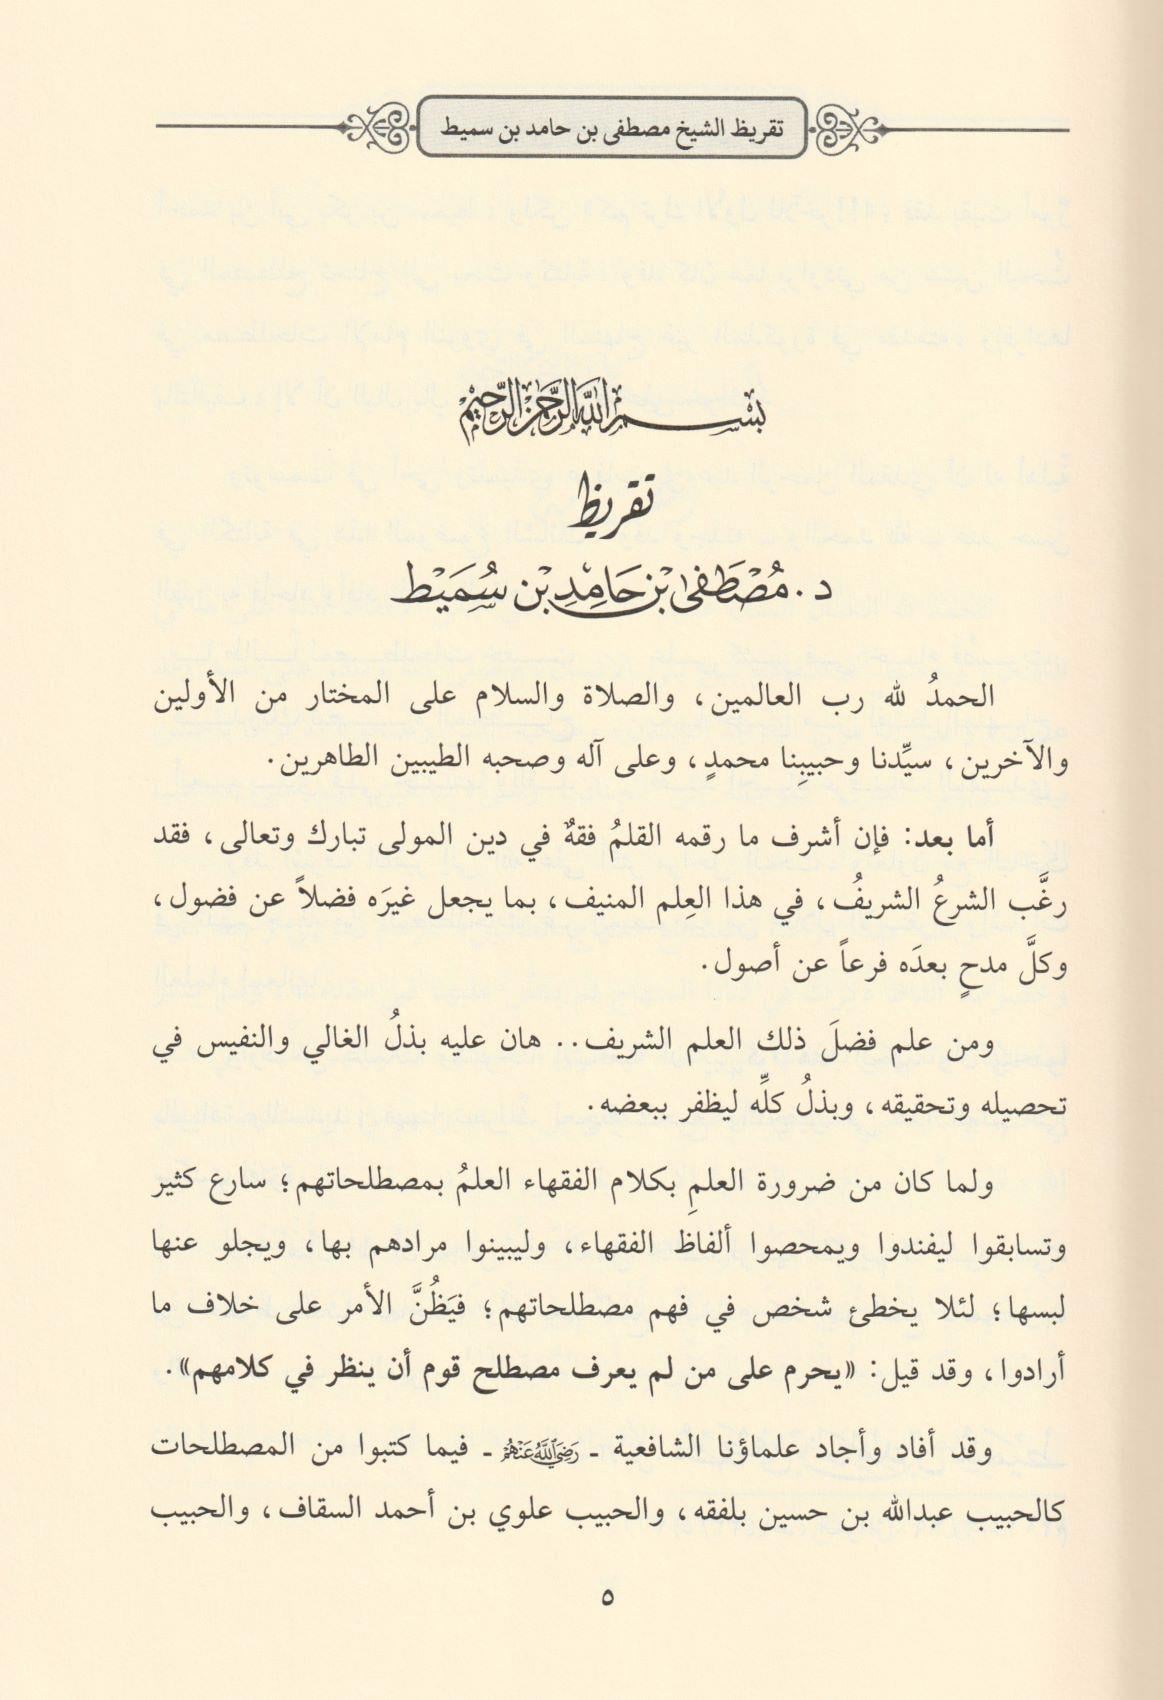 تقريظ الشيخ مصطفى بن حامد بن سميط
بسم الله الرحمن الرحيم
تقريظ
د. مُصْطَفىٰ بْن حَامِدِ بْن سُمَيْط
الحمدُ لله رب العالمين، والصلاة والسلام على المختار من الأولين
والآخرين، سيِّدنا وحبيبِنا محمدٍ، وعلى آله وصحبه الطيبين الطاهرين.
أما بعد: فإن أشرف ما رقمه القلمُ فقهٌ في دين المولى تبارك وتعالى، فقد
رغَّب الشرعُ الشريفُ، في هذا العِلم المنيف، بما يجعل غيرَه فضلاً عن فضول،
وكلَّ مدحٍ بعدَه فرعاً عن أصول.
ومن علم فضلَ ذلك العلم الشريف.. هان عليه بذلُ الغالي والنفيس في
تحصيله وتحقيقه، وبذلُ كلِّه ليظفر ببعضه.
ولما كان من ضرورة العلمِ بكلام الفقهاء العلمُ بمصطلحاتهم؛ سارع كثير
وتسابقوا ليفندوا ويمحصوا ألفاظ الفقهاء، وليبينوا مرادهم بها، ويجلو عنها
لبسها؛ لئلا يخطئ شخص في فهم مصطلحاتهم؛ فيَظُنَّ الأمر على خلاف ما
أرادوا، وقد قيل: «يحرم على من لم يعرف مصطلح قوم أن ينظر في كلامهم».
وقد أفاد وأجاد علماؤنا الشافعية ـ رَضِيَ اللَّهُ عَنْهُمْ ـ فيما كتبوا من المصطلحات
كالحبيب عبدالله بن حسين بلفقه، والحبيب علوي بن أحمد السقاف، والحبيب
٥